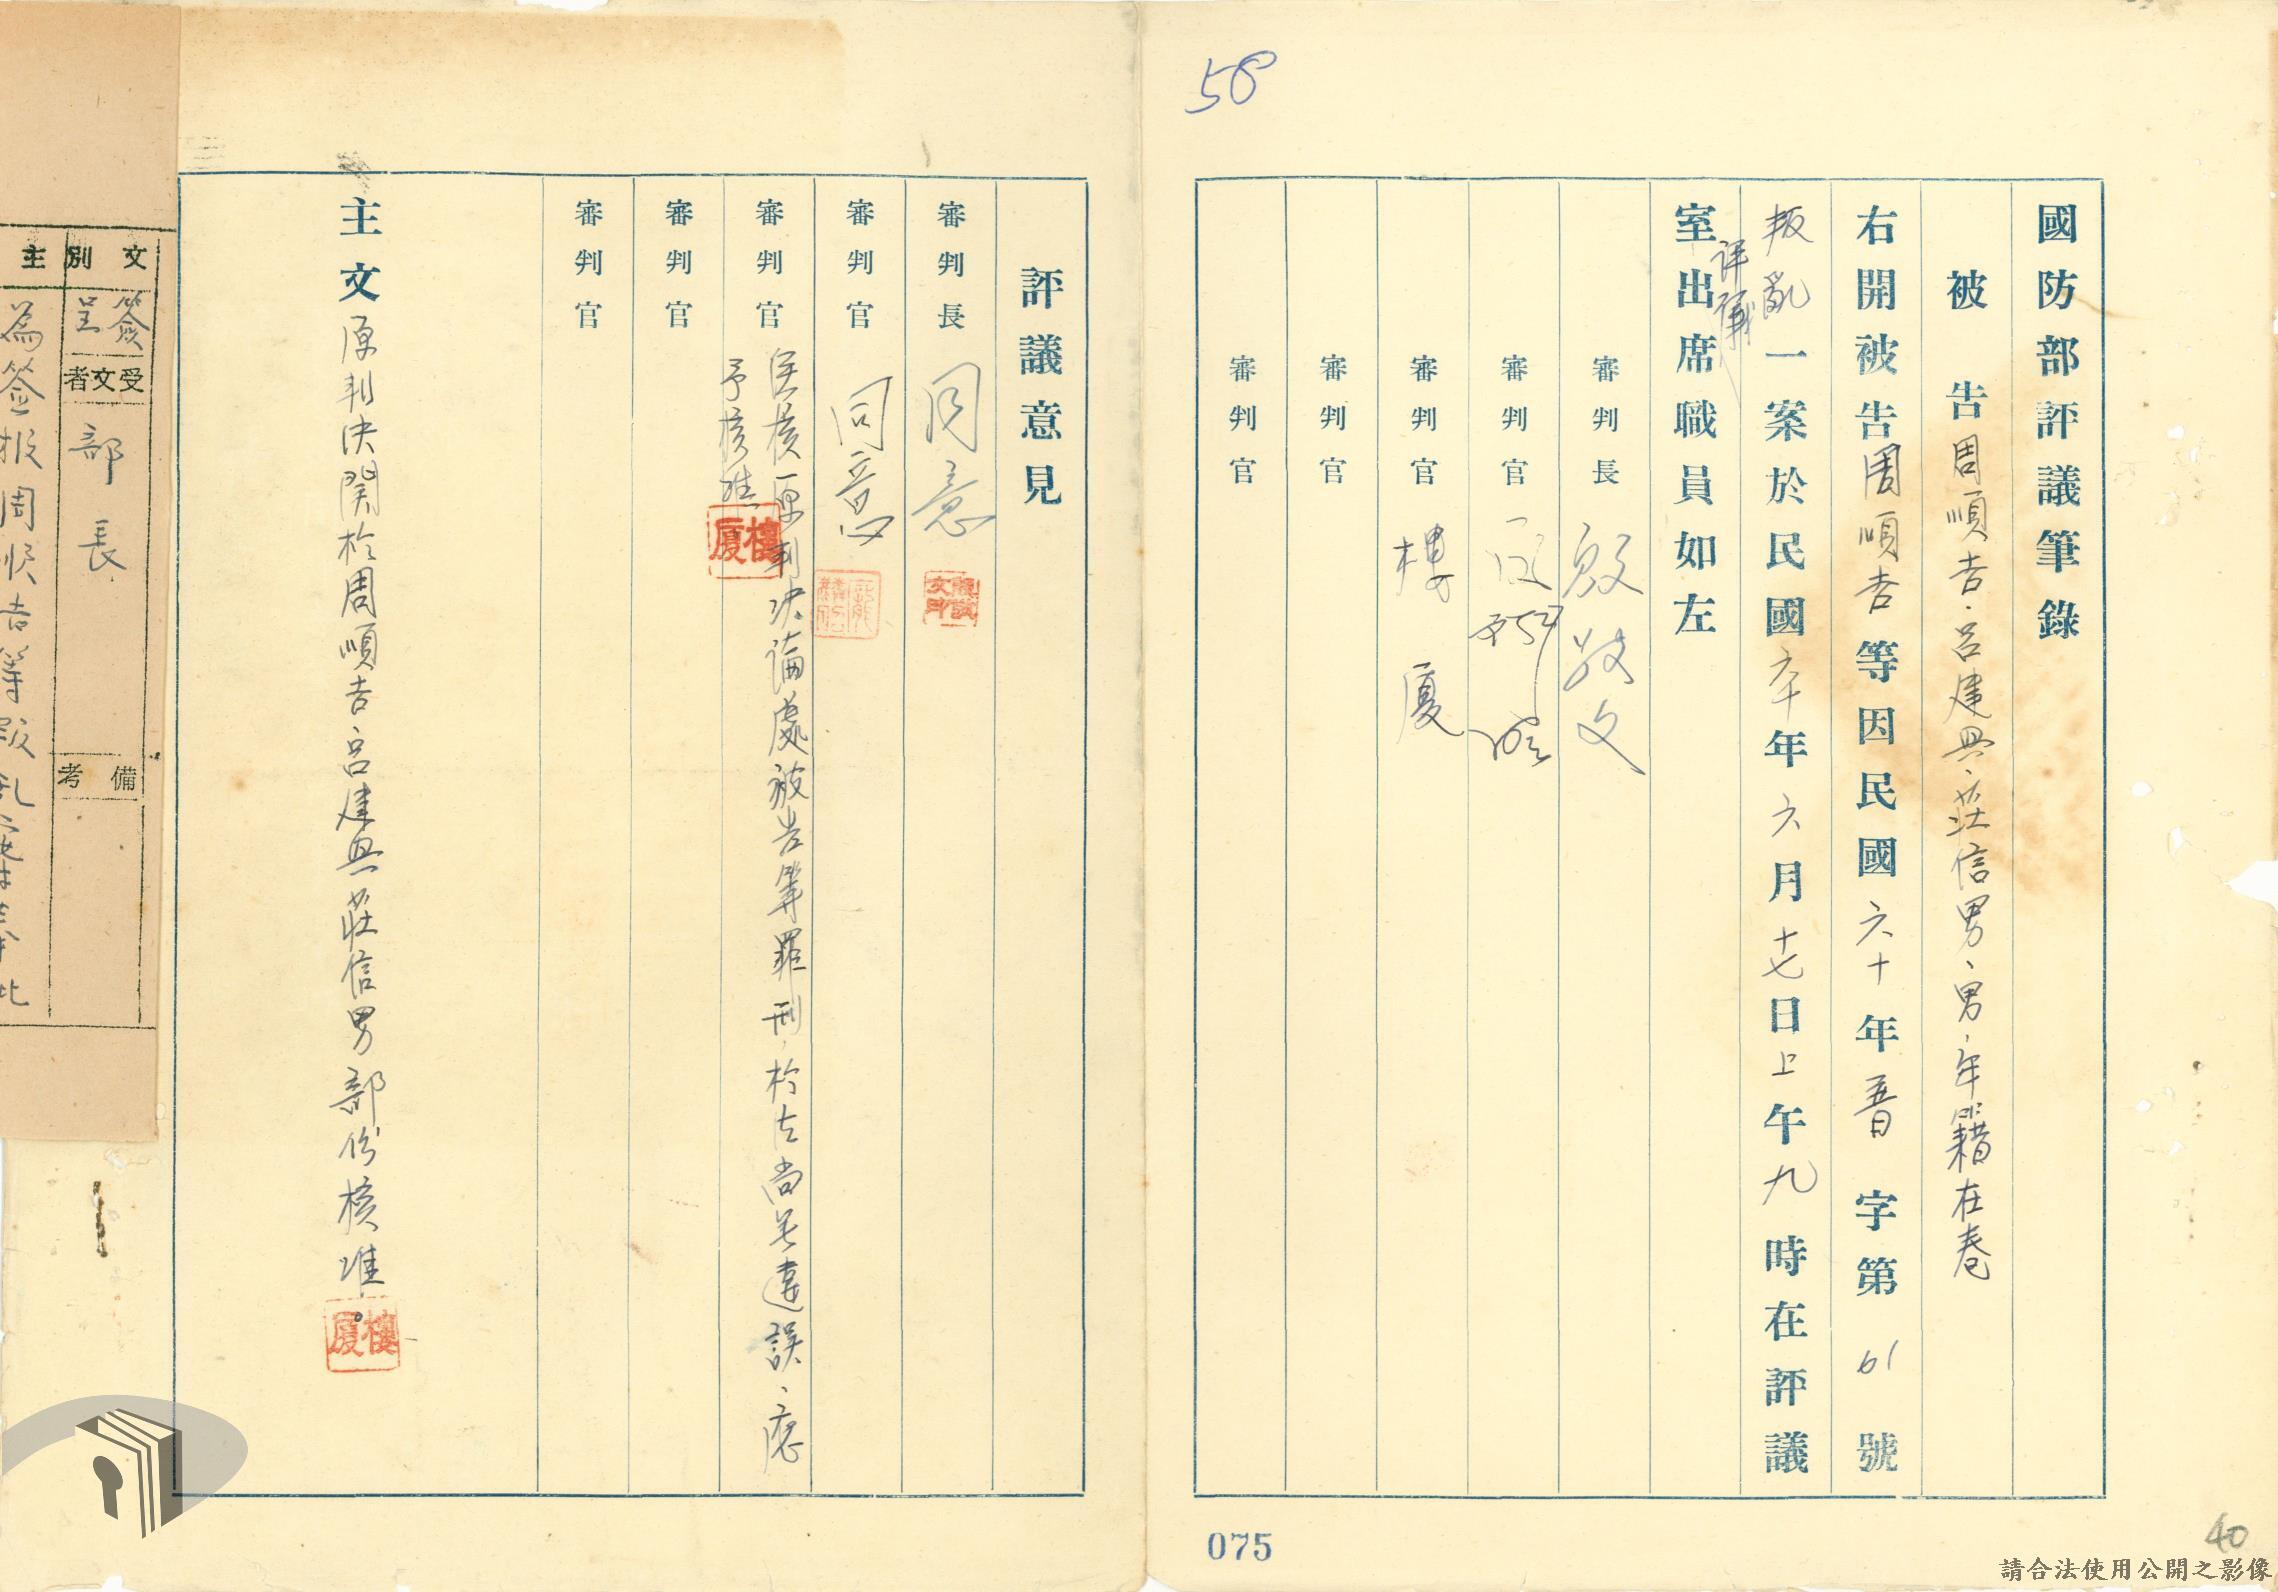 58
國防部評議筆錄
被告周順吉、呂建興、莊信男、男、年籍在卷
右開被告周順吉等因民國六十年 字第61號
叛亂一案於民國六十年六月十七日上午九時在評議
評議
室出席職員如左
審判長 殷敬文
審判官
審判官 樓厦
審判官
審判官
075
40
評議意見
審判長 同意
審判官 同意
審判官 原判決論處被告等罪刑,於法尚無違誤、應
予核准
樓厦
審判官
審判官
主文 原判決關於周順吉呂建興莊信男部份核准。
樓厦
文別 簽呈
受文者 部長
備考
主
為簽報周順吉等叛乱
請合法使用公開之影像